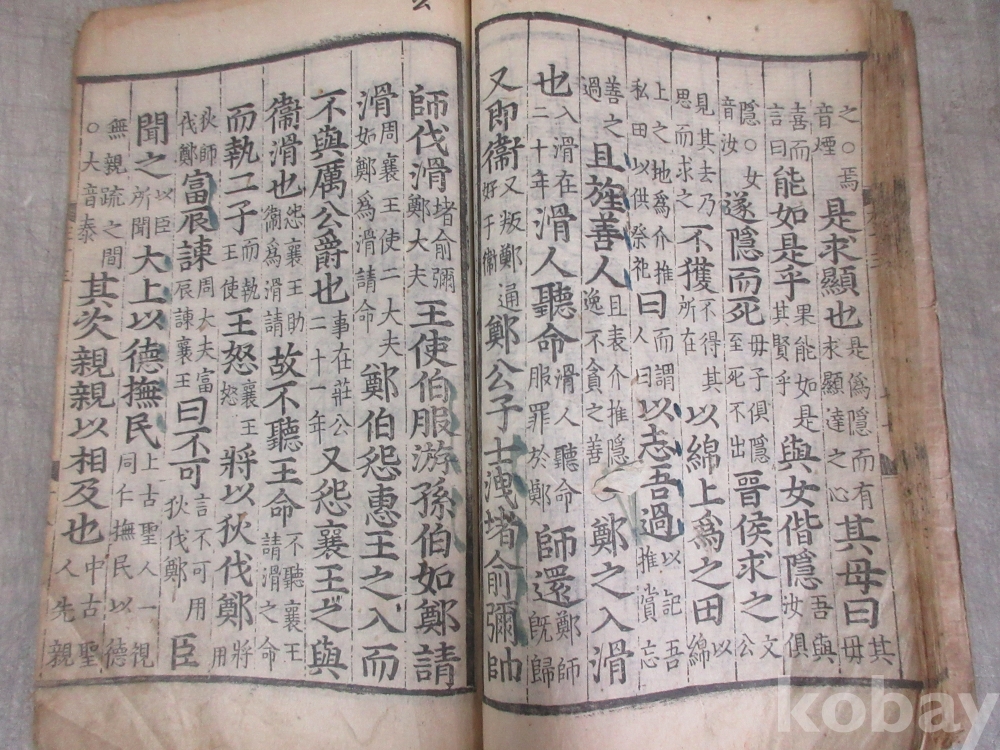 之○焉音煙是求顯也是爲隱而有求顯達之心其母曰其母
喜而言曰能如是乎果能如是其賢乎與女偕隱吾與汝俱
隱○女音汝遂隱而死母子俱隱至死不出晉侯求之文公
見其去乃思而求之不獲不得其所在以綿上爲之田以綿
上之地爲介推私田以供祭祀曰而謂人曰以志吾過以記吾推賞忘
善之過且旌善人且表介推隱逸不貪之善鄭之入滑
也入滑在二十年滑人聽命滑人聽命服罪於鄭師還鄭師旣歸
又即衞又叛鄭通好于衞鄭公子士洩堵俞彌帥
師伐滑堵俞彌鄭大夫王使伯服游孫伯如鄭請
滑周襄王使二大夫如鄭爲滑請命鄭伯怨惠王之入而
不與厲公爵也事在莊公二十一年又怨襄王之與
衞滑也怨襄王助衞爲滑請故不聽王命不聽襄王請滑之命
而執二子而執王使王怒襄王怒將以狄伐鄭將用
狄師伐鄭富辰諫周大夫富辰諫襄王曰不可言不可用狄伐鄭臣
聞之以臣所聞大上以德撫民上古聖人一視同仁撫民以德
無親疏之間○大音泰其次親親以相及也中古聖人先親
kobay